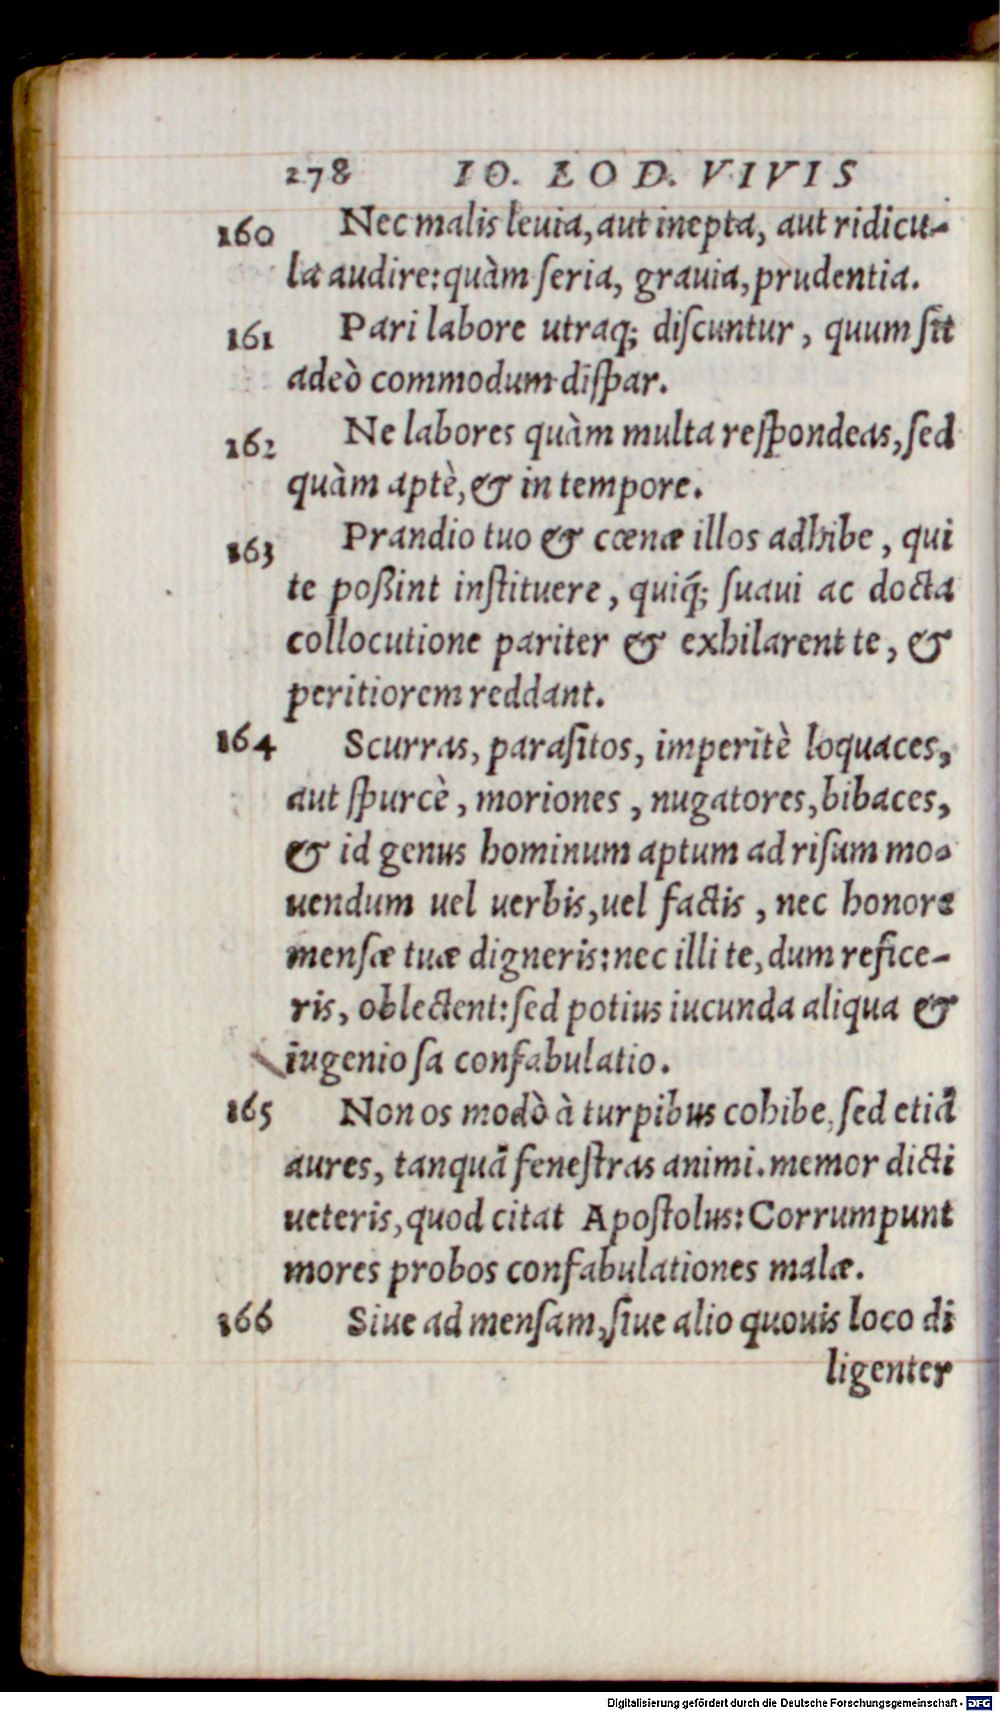 278 IO. LOD. VIVIS
160 Nec malis leuia, aut inepta, aut ridicu-
la audire: quàm ſeria, grauia, prudentia.
161 Pari labore utraq; diſcuntur, quum ſit
adeò commodum diſpar.
162 Ne labores quàm multa reſpondeas, ſed
quàm aptè, & in tempore.
163 Prandio tuo & cœnæ illos adhibe, qui
te poßint inſtituere, quiq́; ſuaui ac docta
collocutione pariter & exhilarent te, &
peritiorem reddant.
164 Scurras, paraſitos, imperitè loquaces,
aut ſpurcè, moriones, nugatores, bibaces,
& id genus hominum aptum ad riſum mo-
uendum uel uerbis, uel factis, nec honore
menſæ tuæ digneris: nec illi te, dum refice-
ris, oblectent: ſed potius iucunda aliqua &
iugenioſa confabulatio.
165 Non os modò à turpibus cohibe, ſed etiã
aures, tanquã feneſtras animi. memor dicti
ueteris, quod citat Apoſtolus: Corrumpunt
mores probos confabulationes malæ.
166 Siue ad menſam, ſiue alio quouis loco di
ligenter
Digitalisierung gefördert durch die Deutsche Forschungsgemeinschaft - DFG